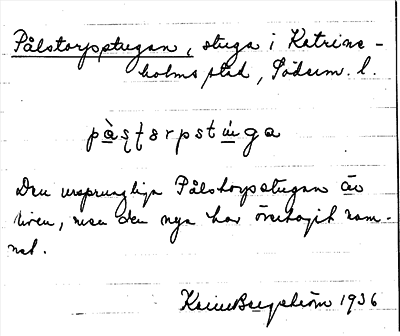 Pålstorpstugan, stuga i Katrine-
holms stad, Söderm. l.
pàʂʈɔrpstùga
Den ursprungliga Pålstorpstugan är
riven, men den nya har övertagit nam-
net.
Karin Bergström 1936